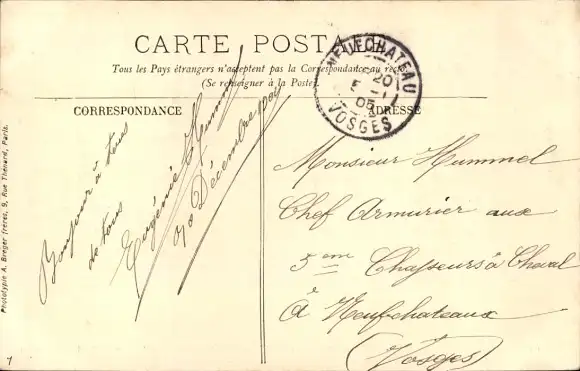 CARTE POSTALE
Tous les Pays étrangers n'acceptent pas la Correspondance au recto
(Se renseigner à la Poste)
CORRESPONDANCE
ADRESSE
NEUFCHATEAU
20
5 - 1
05
VOSGES
Bonjour à tous
de tous
Eugénie Hummel
Décembre
Monsieur Hummel
Chef Armurier aux
5em Chasseurs à Cheval
à Neufchateaux
(Vosges)
Phototypie A. Breger frères, 9, Rue Thénard, Paris.